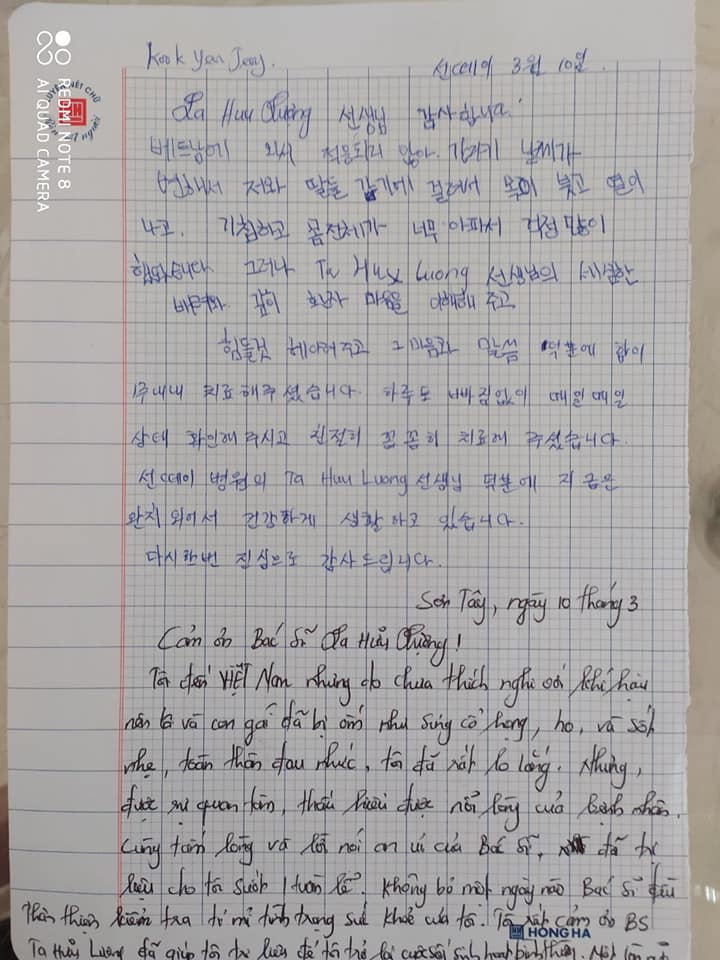 REDMI NOTE 8
AI QUAD CAMERA
Kook Yeon Jeong.
선떠이 3월 10일.
Ta Huu Luong 선생님 감사합니다.
베트남에 와서 적응되지 않아 갑자기 날씨가
변해서 저와 딸들 감기에 걸려서 목이 붓고 열이
나고. 기침하고 몸전체가 너무 아파서 걱정 많이
했었습니다. 그러나 Ta Huu Luong 선생님의 세심한
배려와 깊이 환자 마음을 이해해 주고
힘들것 헤아려주고 그 마음과 말씀 덕분에 힘이
1주내내 치료해주셨습니다. 하루도 빠짐없이 매일매일
상태 확인해주시고 친절히 꼼꼼히 치료해 주셨습니다.
선떠이 병원의 Ta Huu Luong 선생님 덕분에 지금은
완치 되어서 건강하게 생활하고 있습니다.
다시한번 진심으로 감사드립니다.
Sơn Tây, ngày 10 tháng 3
Cảm ơn Bác Sĩ Tạ Hữu Lượng!
Tôi đến VIỆT Nam nhưng do chưa thích nghi với khí hậu
nên tôi và con gái đã bị ốm như sưng cổ họng, ho, và sốt
nhẹ, toàn thân đau nhức, tôi đã rất lo lắng. Nhưng,
được sự quan tâm, thấu hiểu được nỗi lòng của bệnh nhân.
Cùng tấm lòng và lời nói an ủi của Bác Sĩ, đã trị
liệu cho tôi suốt 1 tuần lễ. Không bỏ một ngày nào Bác Sĩ đều
thân thiện kiểm tra tỉ mỉ tình trạng sức khoẻ của tôi. Tôi rất cảm ơn BS
Tạ Hữu Lượng đã giúp tôi trị liệu để tôi trở lại cuộc sống sinh hoạt bình thường. Một lần nữa
HỒNG HÀ